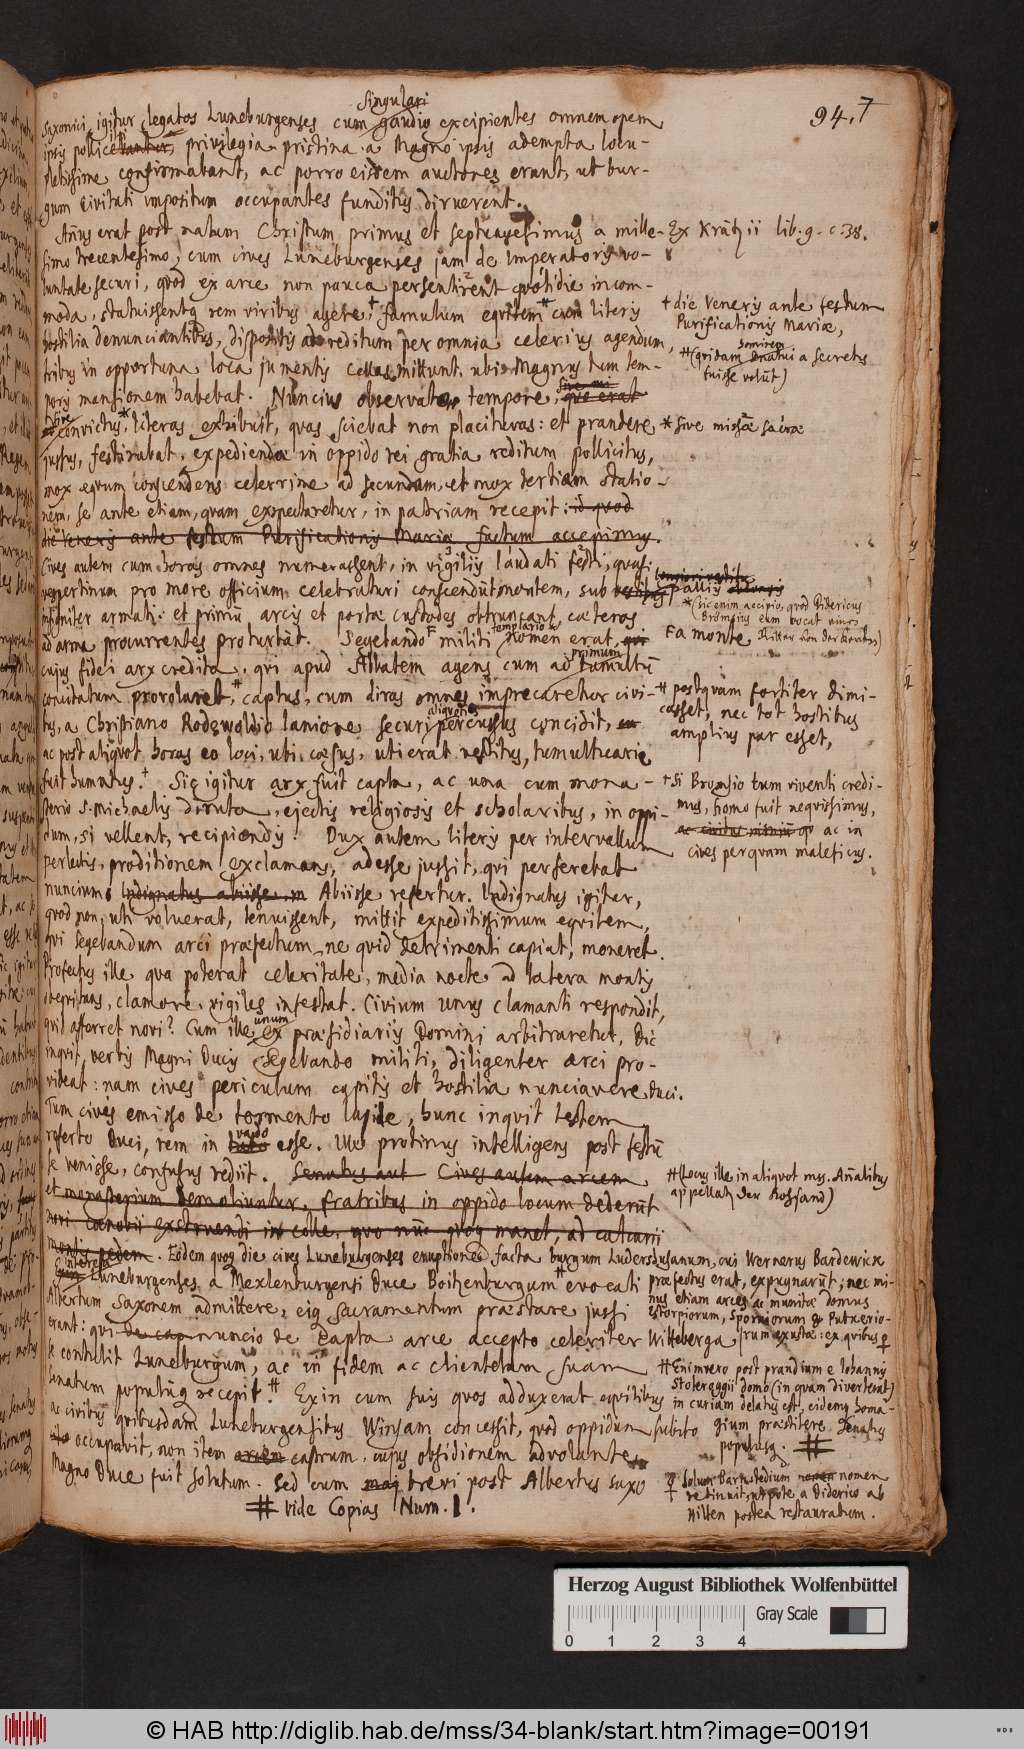 94.7
Singulari
Saxonici igitur legatos Luneburgenses cum gaudio excipientes omnem opem
ipsis pollicebantur, privilegia pristina a Magno ipsis adempta locu-
pletissime confirmabant, ac porro eisdem auctores erant, ut bur-
gum civitati impositum occupantes funditus diruerent.
Añus erat post natum Christum primus et septuagesimus a mille-
simo trecentesimo, cum cives Luneburgenses jam de Imperatoris vo-
luntate securi, quod ex arce non pauca persentirent quotidie incom-
moda, statuissentq rem viribus agere, † famulum equitem # cum literis
hostilia denunciantibus, dispositis ad reditum per omnia celerius agendum,
tribus in opportuna loca jumentis Cellas mittunt, ubi Magnus tum tem-
poris mansionem habebat. Nuncius observato tempore, que erat
convictus, * literas exhibuit, quas sciebat non placituras: et prandere
jussus, festinabat, expediendae in oppido rei gratia reditum pollicitus,
mox equum conscendens celerrime ad secundam, et mox tertiam statio-
nem, se ante etiam, quam expectaretur, in patriam recepit: id quod
die Veneris ante festum Purificationis Mariae factum accepimus.
Cives autem cum horas omnes numerassent, in vigiliis laudati festi, quasi
vespertinum pro more officium celebraturi conscendūt montem, sub palliis
insigniter armati: et primū arcis et portae custodes obtruncant, caeteros
ad arma procurrentes proturbāt. Segebando militi nomen erat, qui
templario
primum
cujus fidei arx credita, qui apud Abbatem agens cum ad tumultū
concitatum prorolaret, # captus, cum diras omnes imprecaretur civi-
tus, a Christiano Rodewoldio lanione securi percussus concidit,
aliquoties
ac post aliquot horas eo loci, uti caesus, uti erat vestitus, tumultuarie
fuit humatus. † Sic igitur arx fuit capta, ac una cum mona-
sterio S. Michaelis diruta, ejectis religiosis et scholaribus, in oppi-
dum, si vellent, recipiendis. Dux autem literis per intervallum
perlectis, proditionem exclamans, adesse jussit, qui perferebat
nuncium. Indignatus abiisse Abiisse, refertur. Indignatus igitur,
quod non, uti voluerat, tenuissent, mittit expeditissimum equitem,
qui Segebandum arci praefectum, ne quid detrimenti capiat, moneret.
Profectus ille qua poterat celeritate, media nocte ad latera montis
obequitans, clamore vigiles infestat. Civium unus clamanti respondit,
quid afferret novi? Cum ille unum ex praesidiariis Domini arbitraretur, Dic
inquit, verbis Magni Ducis Segebando militi, diligenter arci pro-
videat: nam cives periculum capitis et hostilia nunciavere Duci.
Tum cives emisso de tormento lapide, hunc inquit testem
referto Duci, rem in vado esse. Ille protinus intelligens post festū
se venisse, confusus rediit. Senatus aut Cives autem arcem
et monasterium demoliuntur, fratribus in oppido locum dederūt
novi coenobii exstruendi in colle, quo nūc quoq manet, ad calcarii
montis pedem. Eodem quoq die cives Luneburgenses eruptione facta burgum Ludershusanum, cui Wernerus Bardewick
interea
Luneburgenses a Mexlenburgensi Duce Boitzenburgum # evocati
Albertum Saxonem admittere, eiq sacramentum praestare jussi
erant: qui de cap nuncio de capta arce accepto celeriter Witteberga
se contulit Luneburgum, ac in fidem ac clientelam suam
senatum populūq recepit. # Exin cum suis quos adduxerat equitibus
ac civibus quibusdam Luneburgensibus Winsam concessit, quod oppidum subito
occupavit, non item arcem castrum, cujus obsidionem advolante
Magno Duce fuit solutum. Sed cum brevi post Albertus Saxo
# vide Copias Num. 1.
Ex Krātzii lib. 9. c. 38.
† die Veneris ante festum
Purificationis Mariae,
# (quidam a secretis
fuisse volūt)
* sive missā sacrā
Fa monte
* (sic enim accipio, quod Didericus
Bromsius eum vocat einen
Ritter von der)
# postquam fortiter dimi-
casset, nec tot hostibus
amplius par esset,
† Si Bromsio tum viventi credi-
mus, homo fuit nequissimus,
ac in
cives perquam maleficus.
# (Locus ille in aliquot ms. Añalibus
appellatʳ der Rohsand)
praefectus erat, expugnarūt; nec mi-
nus etiam arces ac munitae domus
Estorpiorum, Sporniorum & Putnerio-
rum exustae: ex quibus
# Enimvero post prandium e Iohannis
Stoteroggii domo (in quam diverterat)
in curiam delatus est, eidemq homa-
gium praestitere Senatus
populusq. #
Solum Barnstedium nomen
retinuit, utpote a Diderico ab
Hilten postea restauratum.
Herzog August Bibliothek Wolfenbüttel
0 1 2 3 4
Gray Scale
© HAB http://diglib.hab.de/mss/34-blank/start.htm?image=00191